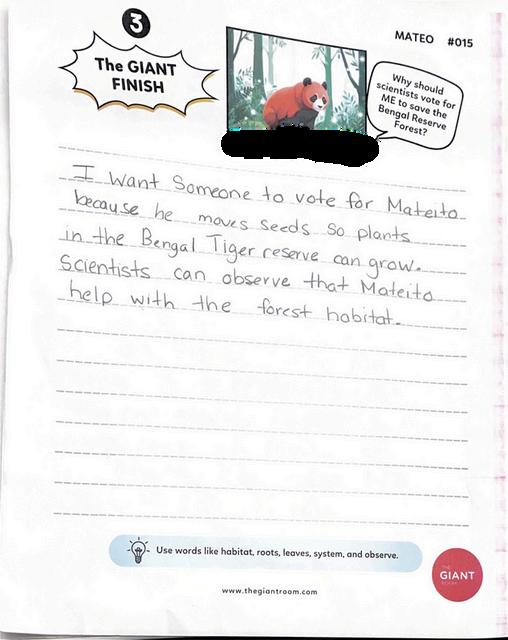 3
The GIANT
FINISH
MATEO #015
Why should
scientists vote for
ME to save the
Bengal Reserve
Forest?
I want Someone to vote for Mateito
because he moves seeds so plants
in the Bengal Tiger reserve can grow.
Scientists can observe that Mateito
help with the forest habitat.
Use words like habitat, roots, leaves, system, and observe.
THE
GIANT
ROOM
www.thegiantroom.com